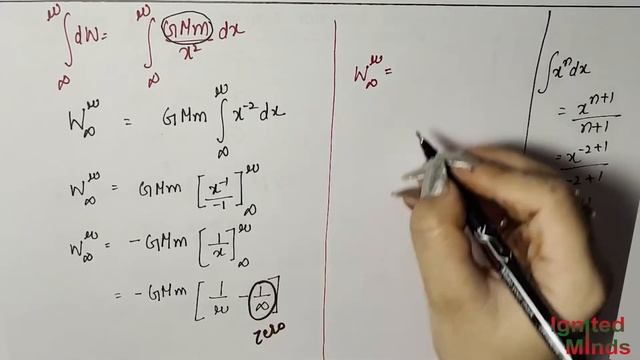 ∫_∞^r dW = ∫_∞^r GMm/x² dx
W_∞^r = GMm ∫_∞^r x⁻² dx
W_∞^r = GMm [x⁻¹/-1]_∞^r
W_∞^r = -GMm [1/x]_∞^r
= -GMm [1/r - 1/∞]
zero
W_∞^r =
∫xⁿdx
= xⁿ⁺¹/n+1
= x⁻²⁺¹/-2+1
Ignited
Minds